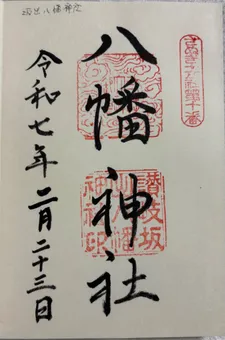 坂出八幡神社
さぬき十五社第十番
八幡神社
讃岐坂
出八幡
神社印
令和七年二月二十三日